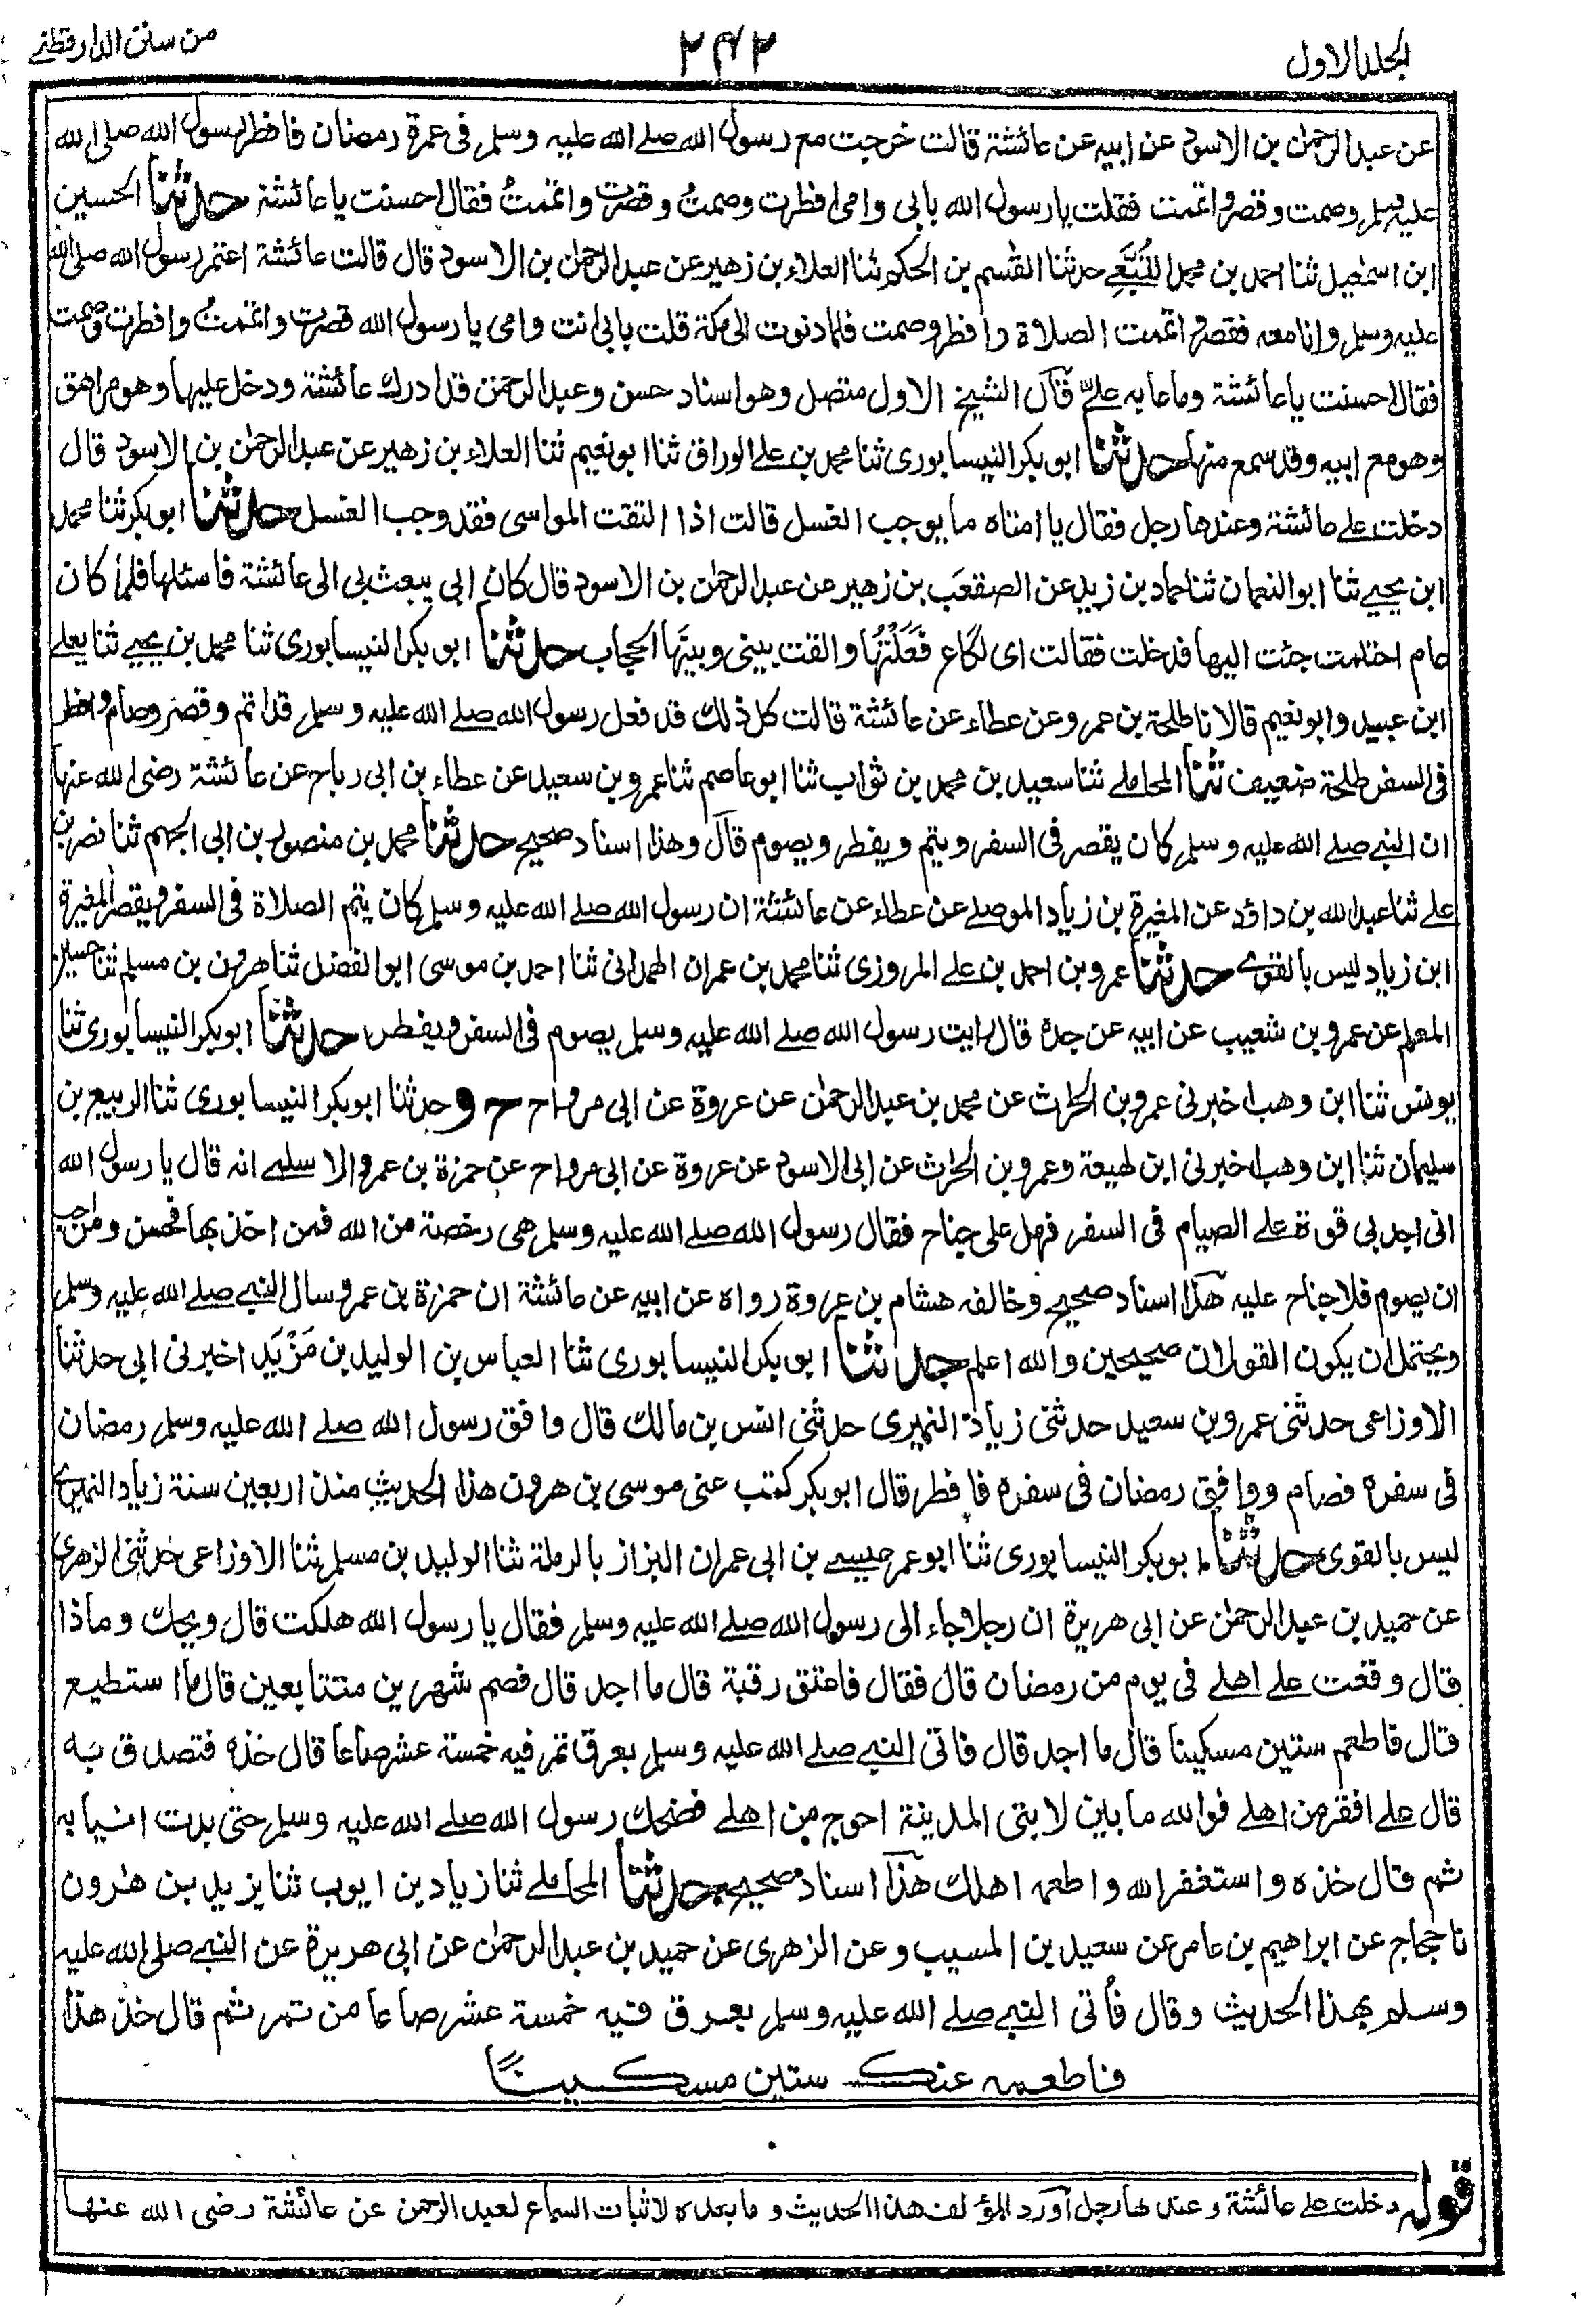 الجلد الاول
٢٤٢
من سنن الدارقطنے
عن عبد الرحمٰن بن الاسود عن ابيه عن عائشة قالت خرجت مع رسول الله صلے الله عليه وسلم فى عمرة رمضان فافطر رسول الله صلى الله
عليه وسلم وصمت وقصر واتممت فقلت يا رسول الله بابى وامى افطرت وصمتُ وقصرت واتممتُ فقال احسنت يا عائشة حدثنا الحسين
ابن اسمٰعيل ثنا احمد بن محمد التُبَّعِے حدثنا القٰسم بن الحكم ثنا العلاء بن زهير عن عبد الرحمٰن بن الاسود قال قالت عائشة اعتمر رسول الله صلى الله
عليه وسلم وانا معه فقصر واتممت الصلاة وافطر وصمت فلما دنوت الى مكة قلت بابى انت وامى يا رسول الله قصرت واتممتُ وافطرت وصمت
فقال احسنت يا عائشة وما عابه علىّ قال الشيخ الاول متصل وهو اسناد حسن وعبد الرحمٰن قد ادرك عائشة ودخل عليها وهو مراهق
وهو مع ابيه وقد سمع منها حدثنا ابو بكر النيسابورى ثنا محمد بن علے الوراق ثنا ابو نعيم ثنا العلاء بن زهير عن عبد الرحمٰن بن الاسود قال
دخلت علے عائشة وعندها رجل فقال يا امتاه ما يوجب الغسل قالت اذا التقت المواسى فقد وجب الغسل حدثنا ابو بكر ثنا محمد
ابن يحيے ثنا ابو النعمان ثنا حماد بن زيد عن الصقعَب بن زهير عن عبد الرحمٰن بن الاسود قال كان ابى يبعث بى الى عائشة فاسئلها فلما كان
عام احتلمت جئت اليها فدخلت فقالت اى لكاع فَعَلْتَهَا والقت بينى وبينها الحجاب حدثنا ابو بكر النيسابورى ثنا محمد بن يحيے ثنا يعلے
ابن عبيد وابو نعيم قالا نا طلحة بن عمرو عن عطاء عن عائشة قالت كل ذلك قد فعل رسول الله صلے الله عليه وسلم قد اتم وقصر وصام وافطر
فى السفر طلحة ضعيف ثنا المحاملے ثنا سعيد بن محمد بن ثواب ثنا ابو عاصم ثنا عمرو بن سعيد عن عطاء بن ابى رباح عن عائشة رضى الله عنها
ان النبے صلے الله عليه وسلم كان يقصر فى السفر ويتم ويفطر ويصوم قال وهذا اسناد صحيح حدثنا محمد بن منصور بن ابى الجهم ثنا نصر بن
علے ثنا عبد الله بن داؤد عن المغيرة بن زياد الموصلے عن عطاء عن عائشة ان رسول الله صلے الله عليه وسلم كان يتم الصلاة فى السفر ويقصر المغيرة
ابن زياد ليس بالقوے حدثنا عمرو بن احمد بن علے المروزى ثنا محمد بن عمران الهمدانى ثنا احمد بن موسى ابو الفضل ثنا هرون بن مسلم ثنا حسين
المعلم عن عمرو بن شعيب عن ابيه عن جده قال رايت رسول الله صلے الله عليه وسلم يصوم فى السفر ويفطر حدثنا ابو بكر النيسابورى ثنا
يونس ثنا ابن وهب اخبرنى عمرو بن الحٰرث عن محمد بن عبد الرحمٰن عن عروة عن ابى مرواح ح وحدثنا ابو بكر النيسابورى ثنا الربيع بن
سليمان ثنا ابن وهب اخبرنى ابن لهيعة وعمرو بن الحٰرث عن ابى الاسود عن عروة عن ابى مرواح عن حمزة بن عمرو الاسلمے انه قال يا رسول الله
انى اجد بى قوة علے الصيام فى السفر فهل على جناح فقال رسول الله صلے الله عليه وسلم هى رخصة من الله فمن اخذ بها فحسن ومن احب
ان يصوم فلا جناح عليه هذا اسناد صحيح وخالفه هشام بن عروة رواه عن ابيه عن عائشة ان حمزة بن عمرو سال النبے صلے الله عليه وسلم
ويحتمل ان يكون القولان صحيحين والله اعلم حدثنا ابو بكر النيسابورى ثنا العباس بن الوليد بن مَزْيَد اخبرنى ابى حدثنا
الاوزاعى حدثنى عمرو بن سعيد حدثنى زياد النميرى حدثنى انس بن مالك قال وافق رسول الله صلے الله عليه وسلم رمضان
فى سفره فصام ووافق رمضان فى سفره فافطر قال ابو بكر كتب عنى موسى بن هرون هذا الحديث منذ اربعين سنة زياد النميرے
ليس بالقوى حدثنا ابو بكر النيسابورى ثنا ابو عمر عيسے بن ابى عمران البزاز بالرملة ثنا الوليد بن مسلم ثنا الاوزاعى حدثنى الزهرى
عن حميد بن عبد الرحمٰن عن ابى هريرة ان رجلا جاء الى رسول الله صلے الله عليه وسلم فقال يا رسول الله هلكت قال ويحك وماذا
قال وقعت علے اهلے فى يوم من رمضان قال فقال فاعتق رقبة قال ما اجد قال فصم شهرين متتابعين قال ما استطيع
قال فاطعم ستين مسكينا قال ما اجد قال فاتى النبے صلے الله عليه وسلم بعرق تمر فيه خمسة عشر صاعا قال خذه فتصدق به
قال علے افقر من اهلے فوالله ما بين لابتى المدينة احوج من اهلے فضحك رسول الله صلے الله عليه وسلم حتى بدت انيابه
ثم قال خذه واستغفر الله واطعمه اهلك هذا اسناد صحيح حدثنا المحاملے ثنا زياد بن ايوب ثنا يزيد بن هٰرون
نا حجاج عن ابراهيم بن عامر عن سعيد بن المسيب وعن الزهرى عن حميد بن عبد الرحمٰن عن ابى هريرة عن النبے صلى الله عليه
وسلم بهذا الحديث وقال فأتى النبے صلے الله عليه وسلم بعرق فيه خمسة عشر صاعا من تمر ثم قال خذ هذا
فاطعمه عنك ستين مسكينًا
قوله دخلت علے عائشة وعندها رجل آورد المؤلف هذا الحديث وما بعده لاثبات السماع لعبد الرحمن عن عائشة رضى الله عنها